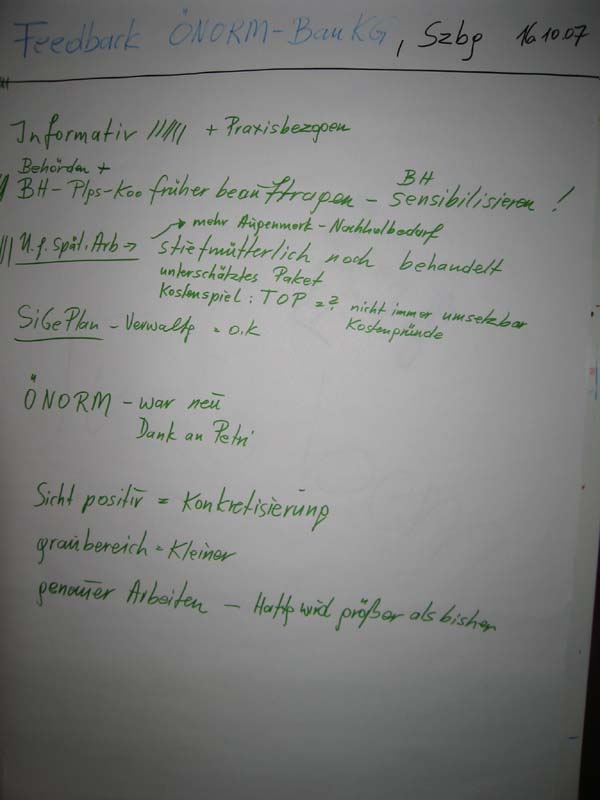 Feedback ÖNORM-BauKG, Szbg 16.10.07
Informativ ////// + Praxisbezogen
Behörden +
BH-Plgs-Koo früher beauftragen - BH sensibilisieren!
→ mehr Augenmerk - Nachholbedarf
/// U.f. spät. Arb → stiefmütterlich noch behandelt
unterschätztes Paket
Kostenspiel: TOP = ? nicht immer umsetzbar
Kostengründe
SiGePlan - Verwaltg = o.k
ÖNORM - war neu
Dank an Petri
Sicht positiv = Konkretisierung
graubereich = Kleiner
genauer Arbeiten - Haftg wird größer als bisher